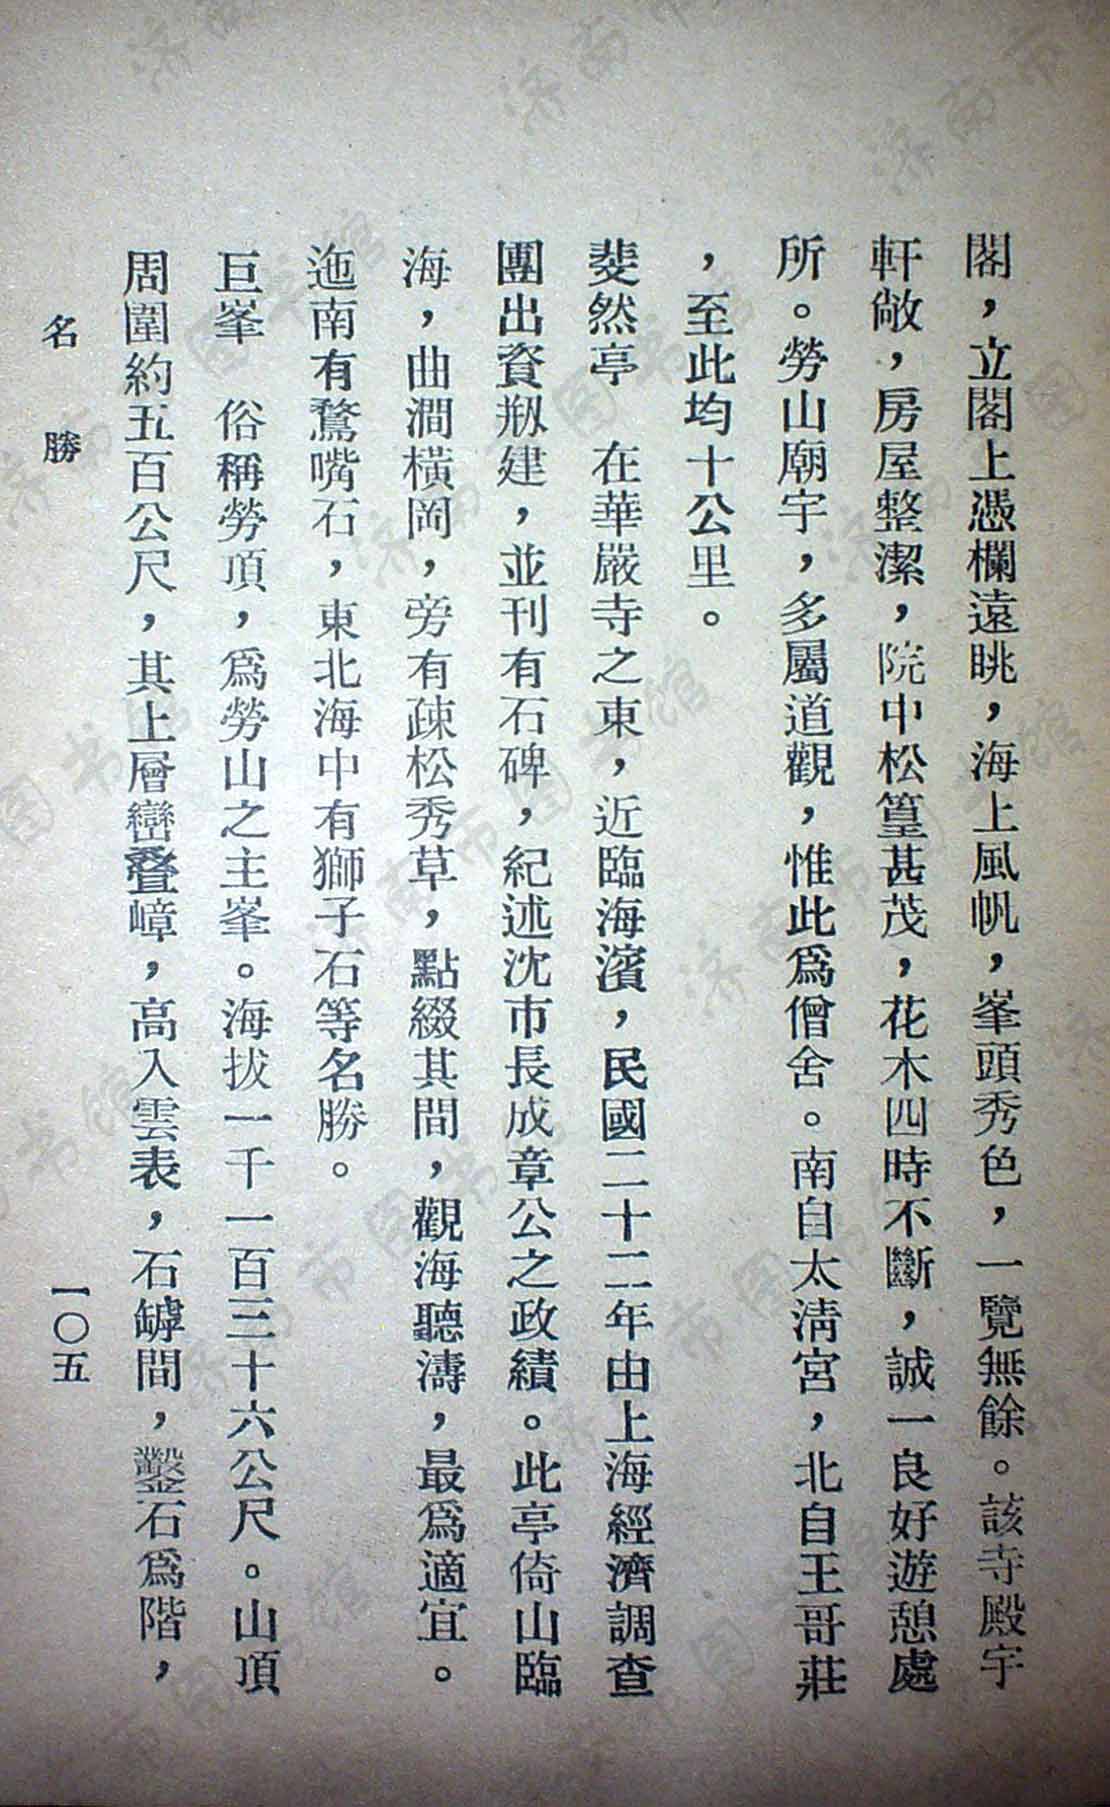 閣，立閣上憑欄遠眺，海上風帆，峯頭秀色，一覽無餘。該寺殿宇
軒敞，房屋整潔，院中松篁甚茂，花木四時不斷，誠一良好遊憩處
所。勞山廟宇，多屬道觀，惟此爲僧舍。南自太淸宮，北自王哥莊
，至此均十公里。
斐然亭　在華嚴寺之東，近臨海濱，民國二十二年由上海經濟調查
團出資剏建，並刊有石碑，紀述沈市長成章公之政績。此亭倚山臨
海，曲澗橫岡，旁有疎松秀草，點綴其間，觀海聽濤，最爲適宜。
迤南有鶩嘴石，東北海中有獅子石等名勝。
巨峯　俗稱勞頂，爲勞山之主峯。海拔一千一百三十六公尺。山頂
周圍約五百公尺，其上層巒叠嶂，高入雲表，石罅間，鑿石爲階，
名勝　一〇五
济南市图书馆